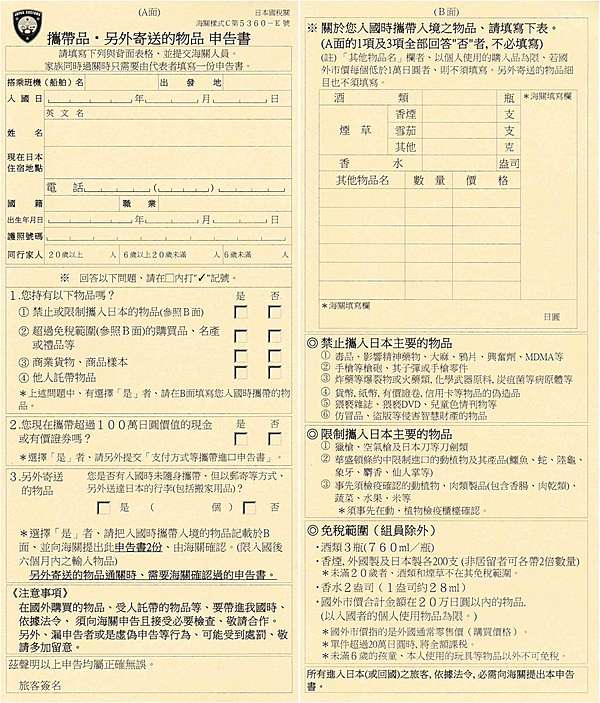 (A面)
日本国税関
海關樣式C第5360-E號
攜帶品・另外寄送的物品 申告書
請填寫下列與背面表格、並提交海關人員。
家族同時過關只需要由代表者填寫一份申告書。
搭乘班機(船舶)名
出發地
入國日 年 月 日
英文名
姓名
現在日本
住宿地點
電話
國籍
職業
出生年月日 年 月 日
護照號碼
同行家人 20歲以上 人 6歲以上20歲未滿 人 6歲未滿 人
※ 回答以下問題、請在□內打"✓"記號。
1.您持有以下物品嗎? 是 否
① 禁止或限制攜入日本的物品(參照B面)
② 超過免稅範圍(參照B面)的購買品、名產
或禮品等
③ 商業貨物、商品樣本
④ 他人託帶物品
*上述問題中、有選擇「是」者、請在B面填寫您入國時攜帶的物
品。
2.您現在攜帶超過100萬日圓價值的現金 是 否
或有價證券嗎?
*選擇「是」者、請另外提交「支付方式等攜帶進口申告書」。
3.另外寄送
的物品
您是否有入國時未隨身攜帶、但以郵寄等方式、
另外送達日本的行李(包括搬家用品)?
是 ( 個) 否
*選擇「是」者、請把入國時攜帶入境的物品記載於B
面、並向海關提出此申告書2份、由海關確認。(限入國後
六個月內之輸入物品)
另外寄送的物品通關時、需要海關確認過的申告書。
《注意事項》
在國外購買的物品、受人託帶的物品等、要帶進我國時、
依據法令、須向海關申告且接受必要檢查、敬請合作。
另外、漏申告者或是虛偽申告等行為、可能受到處罰、敬
請多加留意。
茲聲明以上申告均屬正確無誤。
旅客簽名
(B面)
※ 關於您入國時攜帶入境之物品、請填寫下表。
(A面的1項及3項全部回答"否"者、不必填寫)
(註)「其他物品名」欄者、以個人使用的購入品為限、若國
外市價每個低於1萬日圓者、則不須填寫。另外寄送的物品細
目也不須填寫。
酒類 瓶 *海關填寫欄
煙草 香煙 支
雪茄 支
其他 克
香水 盎司
其他物品名 數量 價格
*海關填寫欄
日圓
◎ 禁止攜入日本主要的物品
① 毒品、影響精神藥物、大麻、鴉片、興奮劑、MDMA等
② 手槍等槍砲、其子彈或手槍零件
③ 炸藥等爆裂物或火藥類、化學武器原料、炭疽菌等病原體等
④ 貨幣、紙幣、有價證卷、信用卡等物品的偽造品
⑤ 猥褻雜誌、猥褻DVD、兒童色情刊物等
⑥ 仿冒品、盜版等侵害智慧財產的物品
◎ 限制攜入日本主要的物品
① 獵槍、空氣槍及日本刀等刀劍類
② 華盛頓條約中限制進口的動植物及其產品(鱷魚、蛇、陸龜、
象牙、麝香、仙人掌等)
③ 事先須檢疫確認的動植物、肉類製品(包含香腸、肉乾類)、
蔬菜、水果、米等
*須事先在動、植物檢疫櫃檯確認。
◎ 免稅範圍 (組員除外)
・酒類3瓶(760ml/瓶)
・香煙、外國製及日本製各200支 (非居留者可各帶2倍數量)
*未滿20歲者、酒類和煙草不在其免稅範圍。
・香水2盎司 (1盎司約28ml)
・國外市價合計金額在20万日圓以內的物品.
(以入國者的個人使用物品為限。)
*國外市價指的是外國通常零售價(購買價格)。
*單件超過20萬日圓時、將全額課稅。
*未滿6歲的孩童、本人使用的玩具等物品以外不可免稅。
所有進入日本(或回國)之旅客、依據法令、必需向海關提出本申告
書。